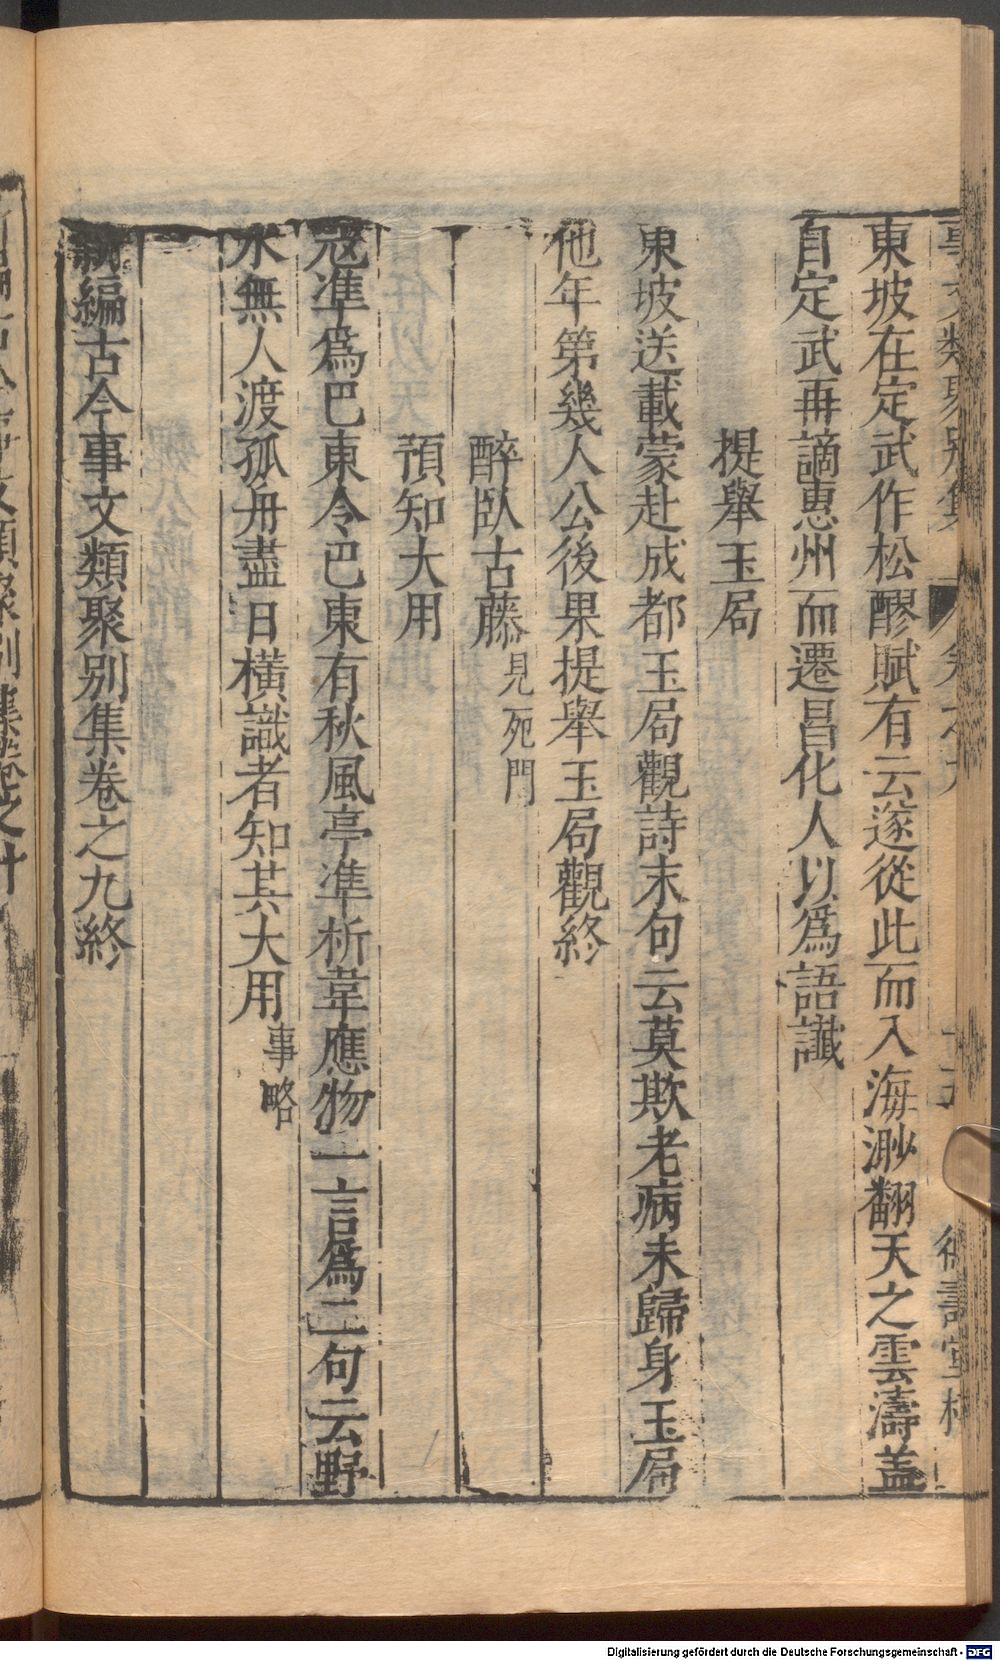 東坡在定武作松醪賦有云遂從此而入海渺翻天之雲濤盖
自定武再謫惠州而遷昌化人以爲語讖
提舉玉局
東坡送載蒙赴成都玉局觀詩末句云莫欺老病未歸身玉局
他年第幾人公後果提舉玉局觀終
醉臥古藤見死門
預知大用
冦準爲巴東令巴東有秋風亭準析韋應物一言爲二句云野
水無人渡孤舟盡日橫識者知其大用事略
新編古今事文類聚别集卷之九終
Digitalisierung gefördert durch die Deutsche Forschungsgemeinschaft - DFG